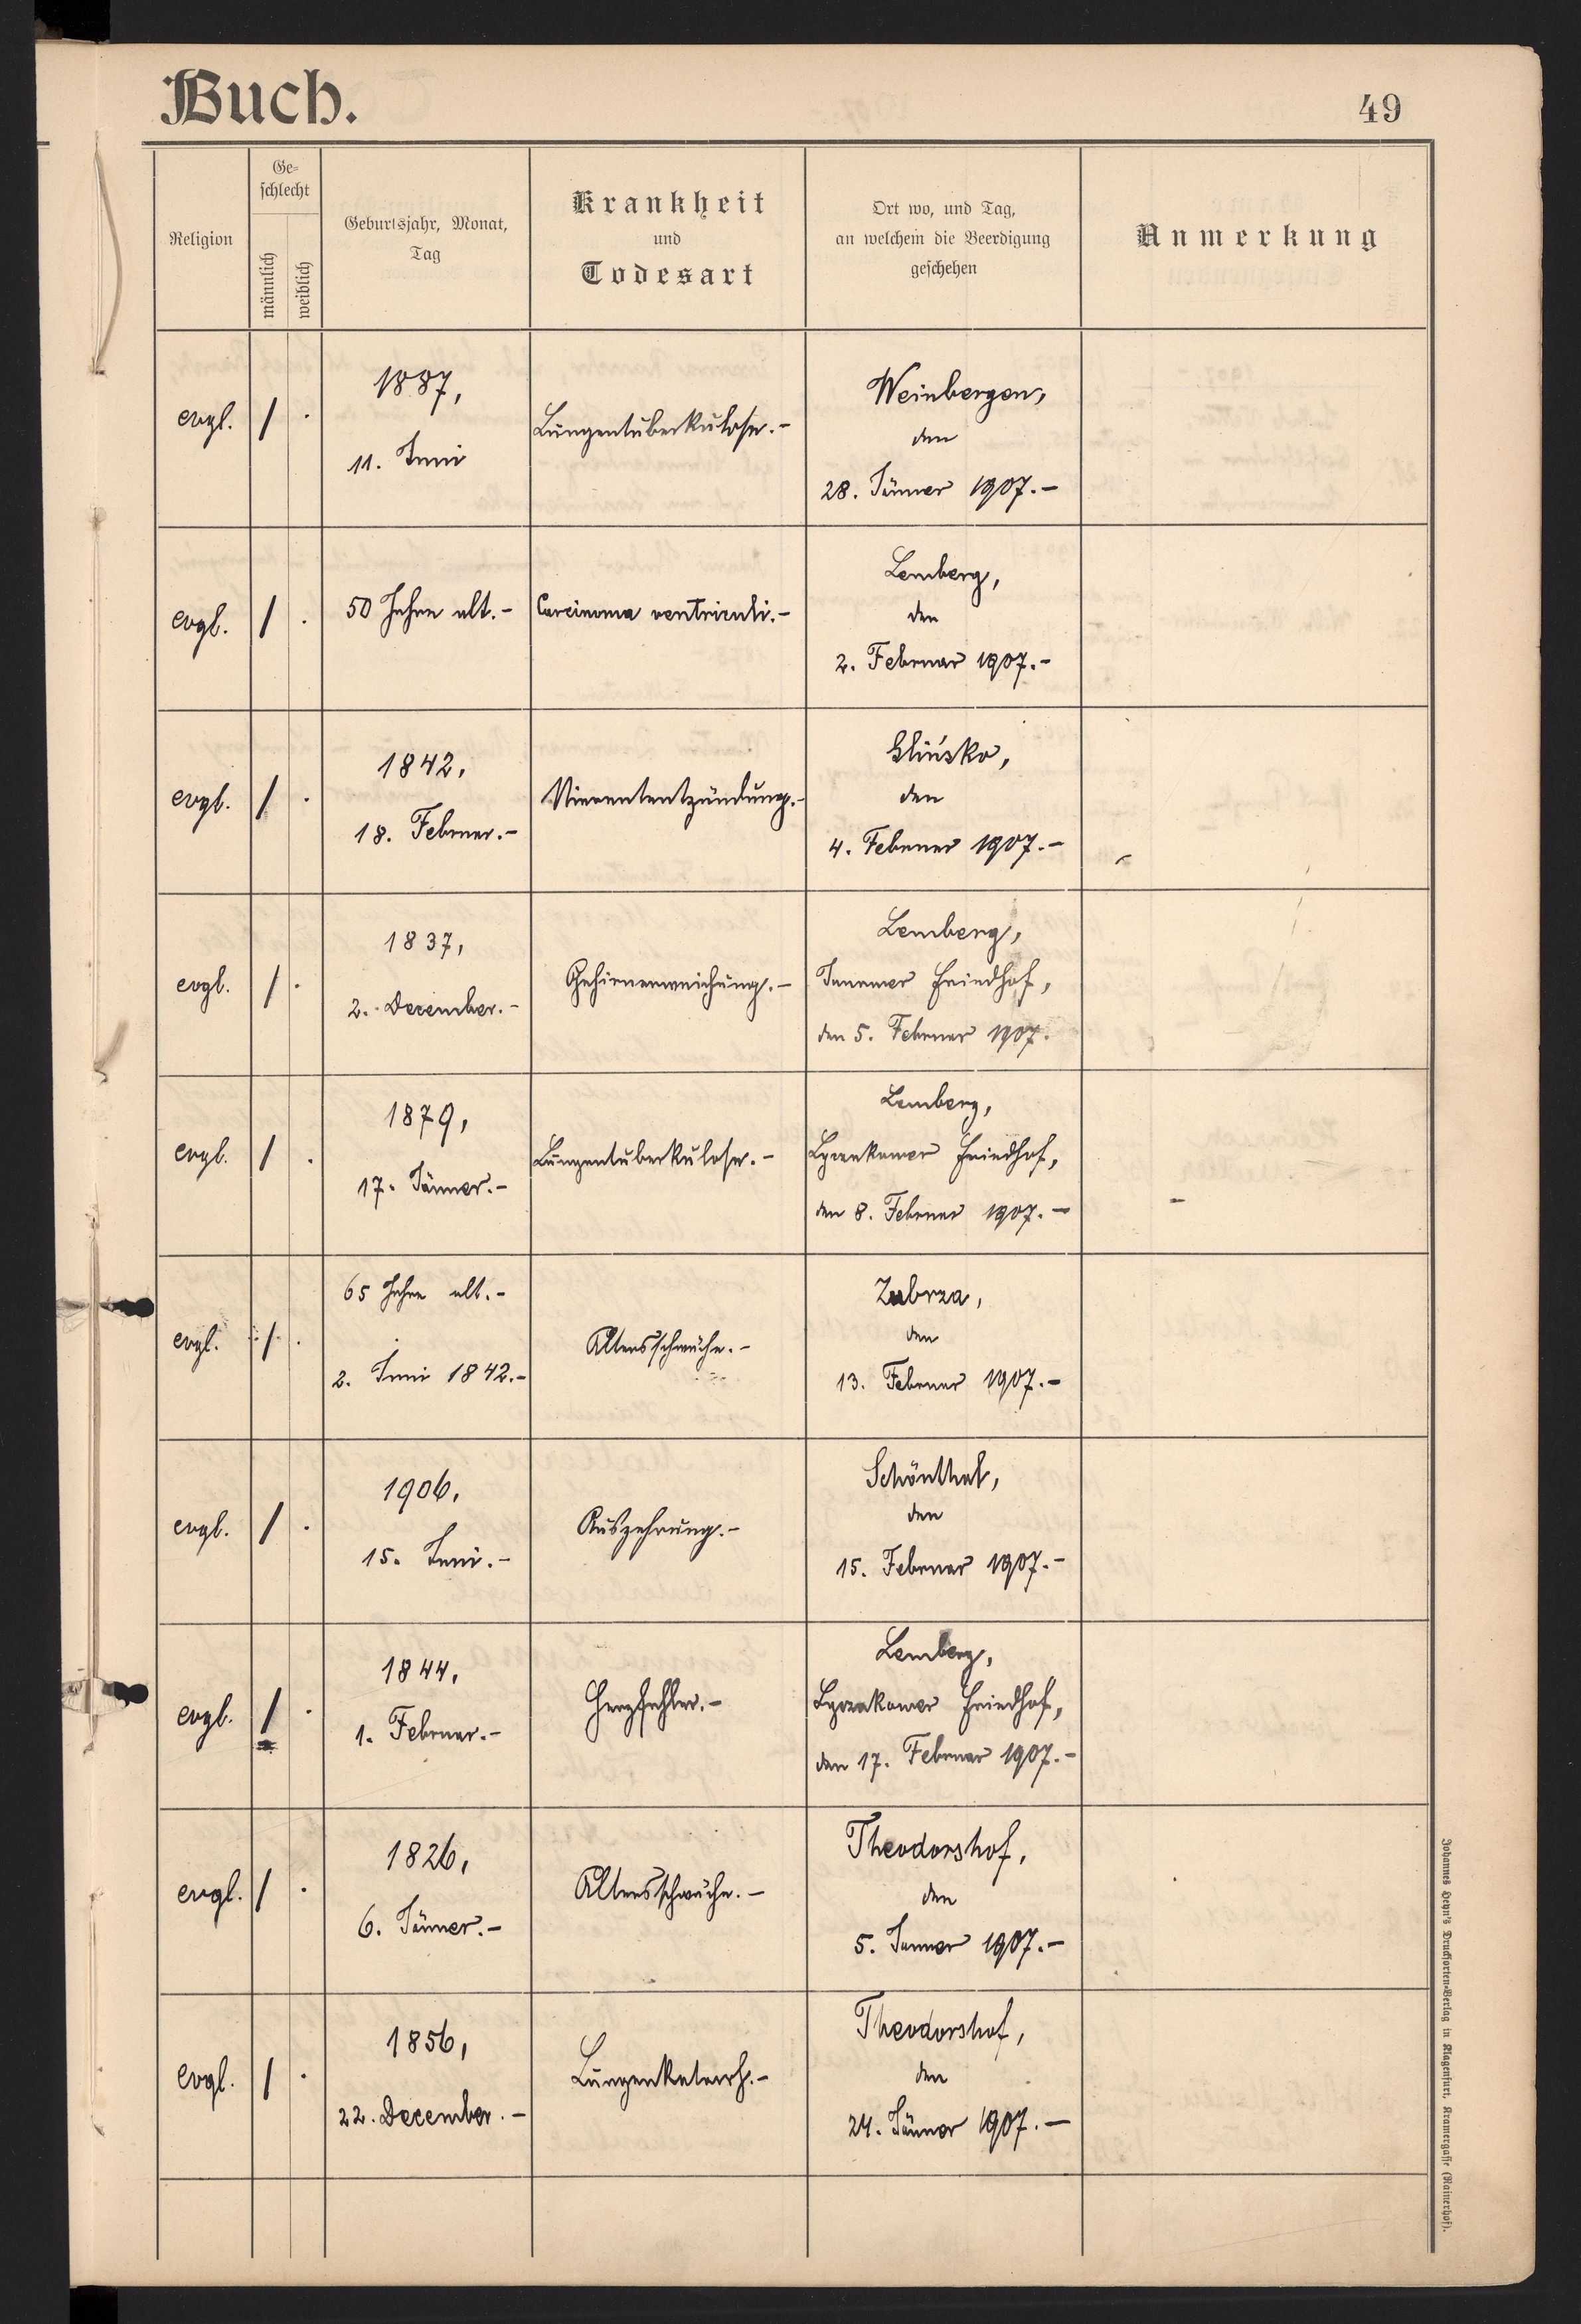 Buch.
49
Religion
Ge-
schlecht
männlich
weiblich
Geburtsjahr, Monat,
Tag
Krankheit
und
Todesart
Ort wo, und Tag,
an welchem die Beerdigung
geschehen
Anmerkung
evgl. / ·
1887,
11. Juni
Lungentuberkulose.-
Weinbergen,
den
28. Jänner 1907.-
evgl. / ·
50 Jahre alt.-
Carcinoma ventriculi.-
Lemberg,
den
2. Februar 1907.-
evgl. / ·
1842,
18. Februar.-
Nierenentzündung.-
Glinsko,
den
4. Februar 1907.-
evgl. / ·
1837,
2. December.-
Gehirnerweichung.-
Lemberg,
Janower Friedhof,
den 5. Februar 1907.
evgl. / ·
1879,
17. Jänner.-
Lungentuberkulose.-
Lemberg,
Lyczakower Friedhof,
den 8. Februar 1907.-
evgl. / ·
65 Jahre alt.-
2. Juni 1842.-
Altersschwäche.-
Zubrza,
den
13. Februar 1907.-
evgl. / ·
1906,
15. Juni.-
Auszehrung.-
Schönthal,
den
15. Februar 1907.-
evgl. / ·
1844,
1. Februar.-
Herzfehler.-
Lemberg,
Lyczakower Friedhof,
den 17. Februar 1907.-
evgl. / ·
1826,
6. Jänner.-
Altersschwäche.-
Theodorshof,
den
5. Janner 1907.-
evgl. / ·
1856,
22. December.-
Lungenkatarrh.-
Theodorshof,
den
24. Jänner 1907.-
Johannes Heyn's Drucksorten-Verlag in Klagenfurt, Kramergasse (Rainerhof).